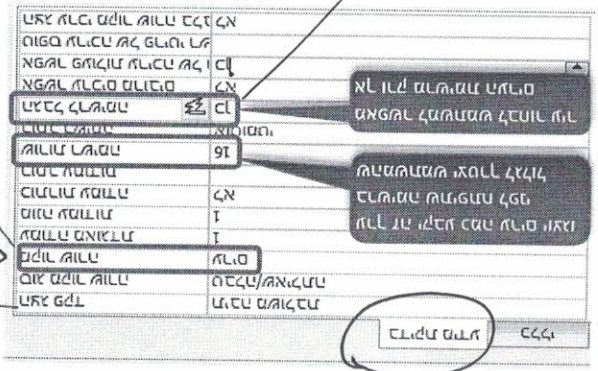 כללי
בדיקת מידע
הצג פקד תיבה משולבת
סוג מקור שורה טבלה/שאילתה
מקור שורה ערים
עמודה מאוגדת 1
מונה עמודות 1
כותרות עמודה לא
רוחב עמודות
שורות רשימה 16
רוחב רשימה אוטומטי
הגבל לרשימה כן
אפשר ערכים מרובים לא
אפשר פעולות עריכה של כן
טופס עריכה של פריטי
הצג ערכי מקור שורה לא
ערך זה יקבע כמה ערים יוצגו
ברשימה שתיפתח לפני
שהמשתמש יצטרך לגלול
מאפשר למשתמש לבחור עיר
אך ורק מרשימת הערים